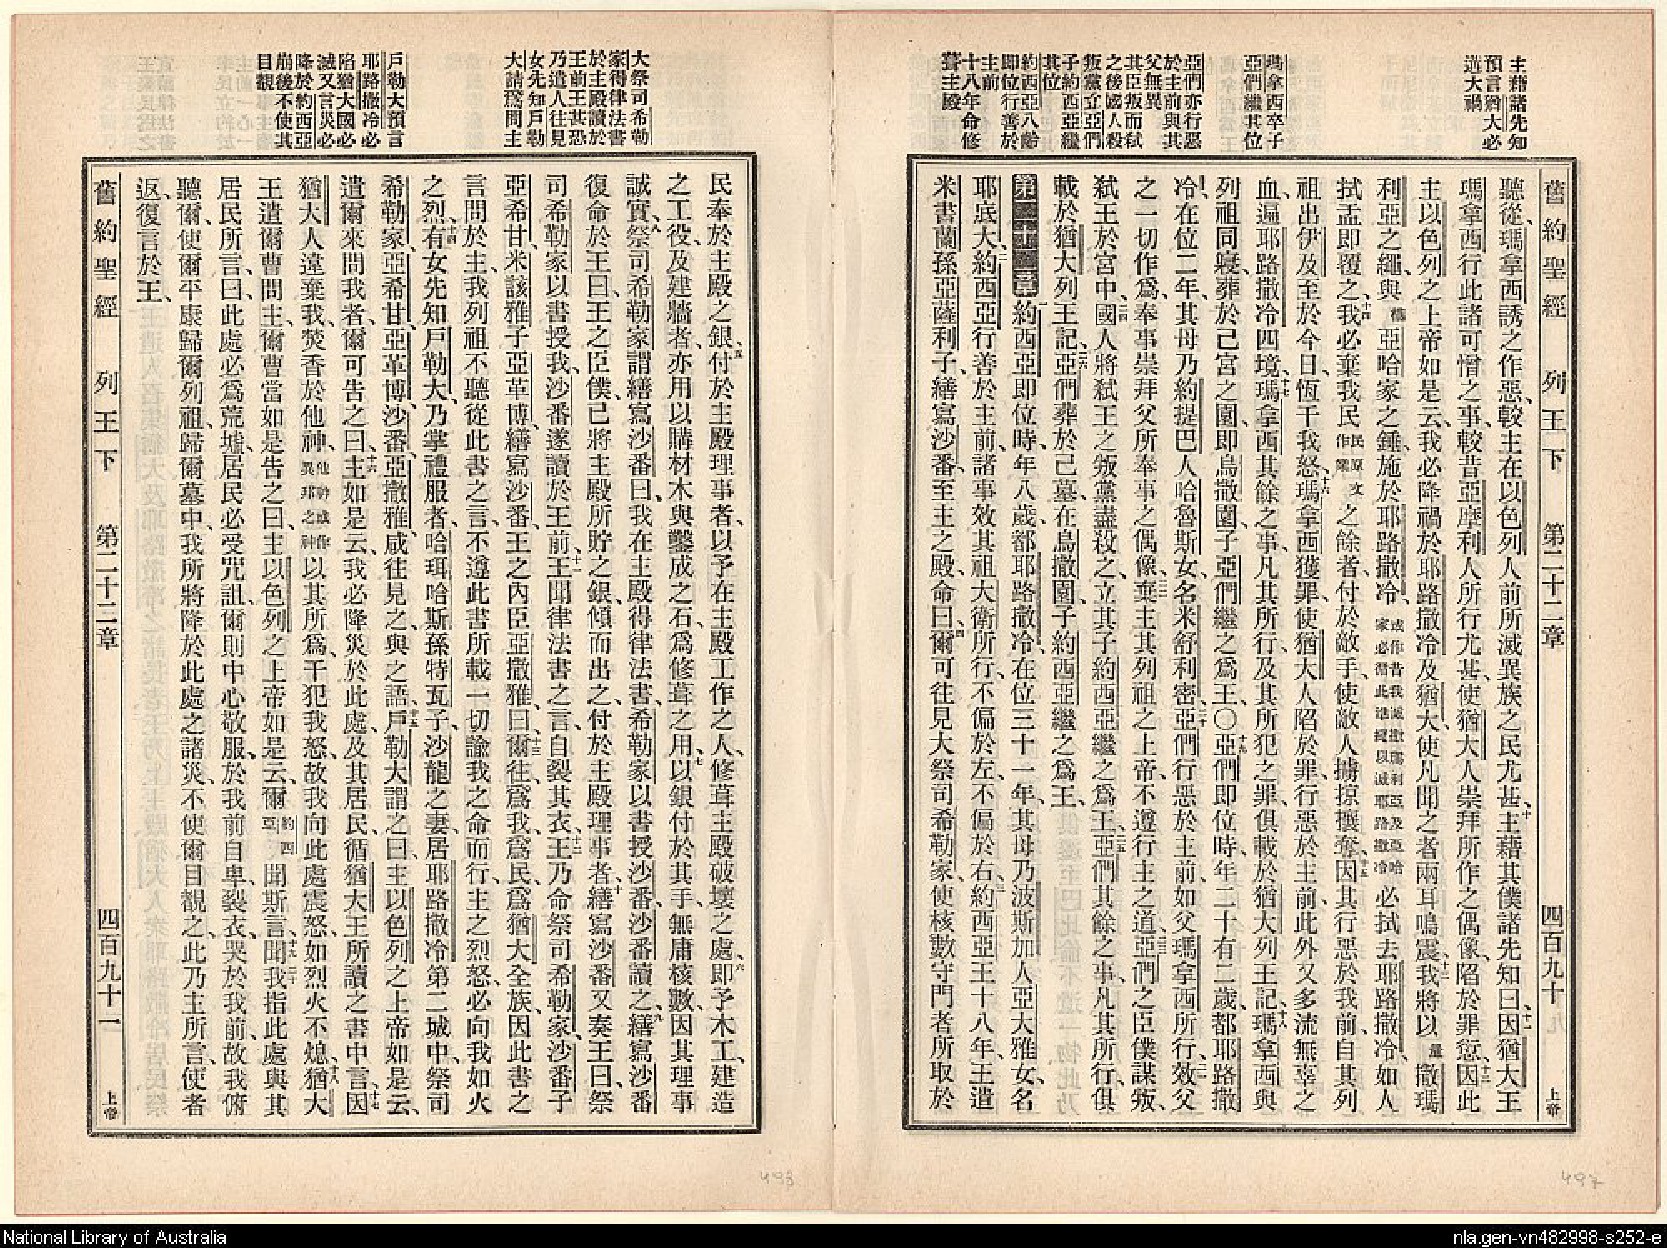 主藉諸先知
預言猶大必
遘大禍
瑪拿西卒子
亞們繼其位
亞們亦行惡
於主前與其
父無異
其臣叛而弒
之後國人殺
叛黨立亞們
子約西亞繼
其位
約西亞八齡
即位行善於
主前
十八年命修
葺主殿
舊約聖經 列王下 第二十二章 四百九十 上帝
聽從、瑪拿西誘之作惡、較主在以色列人前所滅異族之民尤甚、十主藉其僕諸先知曰、十一因猶大王
瑪拿西行此諸可憎之事、較昔亞摩利人所行尤甚、使猶大人崇拜所作之偶像、陷於罪愆、十二因此
主以色列之上帝如是云、我必降禍於耶路撒冷及猶大、使凡聞之者兩耳鳴震、十三我將以量撒瑪
利亞之繩、與懸亞哈家之錘、施於耶路撒冷、必拭去耶路撒冷、如人
拭盂即覆之、十四我必棄我民之餘者、付於敵手、使敵人擄掠攘奪、十五因其行惡於我前、自其列
祖出伊及至於今日、恆干我怒、十六瑪拿西獲罪、使猶大人陷於罪、行惡於主前、此外又多流無辜之
血、遍耶路撒冷四境、十七瑪拿西其餘之事、凡其所行、及其所犯之罪、俱載於猶大列王記、十八瑪拿西與
列祖同寢、葬於己宮之園、即烏撒園、子亞們繼之爲王、〇十九亞們即位時、年二十有二歲、都耶路撒
冷、在位二年、其母乃約提巴人哈魯斯女、名米舒利密、二十亞們行惡於主前、如父瑪拿西所行、二一效父
之一切作爲、奉事崇拜父所奉事之偶像、二二棄主其列祖之上帝、不遵行主之道、二三亞們之臣僕謀叛、
弒王於宮中、二四國人將弒王之叛黨盡殺之、立其子約西亞繼之爲王、二五亞們其餘之事、凡其所行、俱
載於猶大列王記、二六亞們葬於己墓、在烏撒園、子約西亞繼之爲王、
第二十二章 一約西亞即位時、年八歲、都耶路撒冷、在位三十一年、其母乃波斯加人亞大雅女、名
耶底大、二約西亞行善於主前、諸事效其祖大衛所行、不偏於左、不偏於右、三約西亞王十八年、王遣
米書蘭孫亞薩利子、繕寫沙番、至主之殿、命曰、四爾可往見大祭司希勒家、使核數守門者所取於
大祭司希勒
家得律法書
於主殿讀於
王前王甚恐
乃遣人往見
女先知戶勒
大請爲問主
戶勒大預言
耶路撒冷必
陷猶大國必
滅又言災必
降於約西亞
崩後不使其
目覩
民奉於主殿之銀、五付於主殿理事者、以予在主殿工作之人、修葺主殿破壞之處、六即予木工、建造
之工役、及建牆者、亦用以購材木與鑿成之石、爲修葺之用、七以銀付於其手、無庸核數、因其理事
誠實、八祭司希勒家謂繕寫沙番曰、我在主殿得律法書、希勒家以書授沙番、沙番讀之、九繕寫沙番
復命於王曰、王之臣僕、已將主殿所貯之銀、傾而出之、付於主殿理事者、十繕寫沙番又奏王曰、祭
司希勒家以書授我、沙番遂讀於王前、十一王聞律法書之言、自裂其衣、十二王乃命祭司希勒家、沙番子
亞希甘、米該雅子亞革博、繕寫沙番、王之內臣亞撒雅曰、十三爾往爲我、爲民、爲猶大全族、因此書之
言問於主、我列祖不聽從此書之言、不遵此書所載一切諭我之命而行、主之烈怒、必向我如火
之烈、十四有女先知戶勒大、乃掌禮服者、哈珥哈斯孫、特瓦子、沙龍之妻、居耶路撒冷第二城中、祭司
希勒家、亞希甘、亞革博、沙番、亞撒雅、咸往見之、與之語、十五戶勒大謂之曰、主以色列之上帝如是云、
遣爾來問我者、爾可告之曰、十六主如是云、我必降災於此處、及其居民、循猶大王所讀之書中言、十七因
猶大人違棄我、焚香於他神、以其所爲、干犯我怒、故我向此處震怒、如烈火不熄、十八猶大
王遣爾曹問主、爾曹當如是告之曰、主以色列之上帝如是云、爾約西亞聞斯言、十九聞我指此處與其
居民所言、曰、此處必爲荒墟、居民必受咒詛、爾則中心敬服、於我前自卑、裂衣、哭於我前、故我俯
聽爾、使爾平康歸爾列祖、歸爾墓中、我所將降於此處之諸災、不使爾目覩之、此乃主所言、使者
返、復言於王、
舊約聖經 列王下 第二十二章 四百九十一 上帝
National Library of Australia
nla.gen-vn482998-s252-e